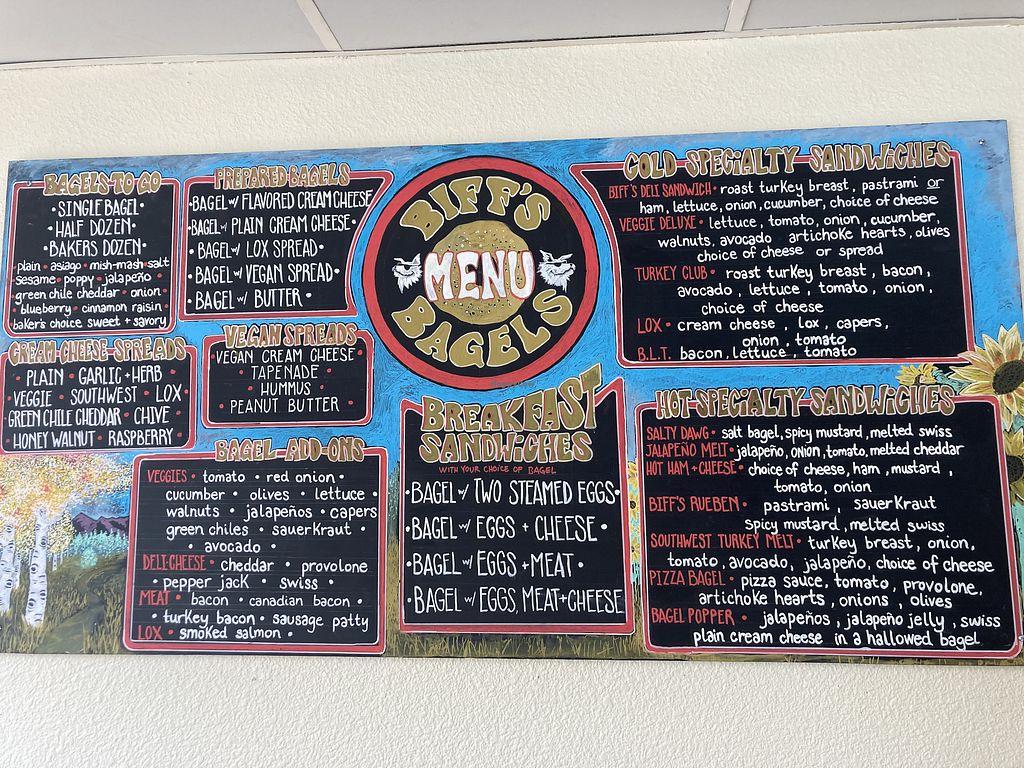 BAGELS TO GO
• SINGLE BAGEL •
• HALF DOZEN •
• BAKERS DOZEN •
plain • asiago • mish-mash • salt
sesame • poppy • jalapeño •
green chile cheddar • onion •
blueberry • cinnamon raisin •
baker's choice sweet + savory
PREPARED BAGELS
• BAGEL w/ FLAVORED CREAM CHEESE •
• BAGEL w/ PLAIN CREAM CHEESE •
• BAGEL w/ LOX SPREAD •
• BAGEL w/ VEGAN SPREAD •
• BAGEL w/ BUTTER •
CREAM-CHEESE-SPREADS
• PLAIN • GARLIC + HERB
VEGGIE • SOUTHWEST • LOX
GREEN CHILE CHEDDAR • CHIVE •
HONEY WALNUT • RASPBERRY •
VEGAN SPREADS
• VEGAN CREAM CHEESE •
TAPENADE •
HUMMUS •
• PEANUT BUTTER •
BAGEL-ADD-ONS
VEGGIES • tomato • red onion •
cucumber • olives • lettuce •
walnuts • jalapeños • capers
green chiles • sauerkraut •
• avocado •
DELI-CHEESE • cheddar • provolone
• pepper jack • swiss •
MEAT • bacon • canadian bacon •
• turkey bacon • sausage patty
LOX • smoked salmon •
BIFF'S
MENU
BAGELS
BREAKFAST
SANDWICHES
WITH YOUR CHOICE OF BAGEL
• BAGEL w/ TWO STEAMED EGGS •
• BAGEL w/ EGGS + CHEESE •
• BAGEL w/ EGGS + MEAT •
• BAGEL w/ EGGS, MEAT + CHEESE
COLD-SPECIALTY-SANDWICHES
BIFF'S DELI SANDWICH • roast turkey breast, pastrami or
ham, lettuce, onion, cucumber, choice of cheese
VEGGIE DELUXE • lettuce, tomato, onion, cucumber,
walnuts, avocado artichoke hearts, olives
choice of cheese or spread
TURKEY CLUB • roast turkey breast, bacon,
avocado, lettuce, tomato, onion,
choice of cheese
LOX • cream cheese, lox, capers,
onion, tomato
B.L.T. bacon, lettuce, tomato
HOT-SPECIALTY-SANDWICHES
SALTY DAWG • salt bagel, spicy mustard, melted swiss
JALAPEÑO MELT • jalapeño, onion, tomato, melted cheddar
HOT HAM + CHEESE • choice of cheese, ham, mustard,
tomato, onion
BIFF'S RUEBEN • pastrami, sauerkraut
spicy mustard, melted swiss
SOUTHWEST TURKEY MELT • turkey breast, onion,
tomato, avocado, jalapeño, choice of cheese
PIZZA BAGEL • pizza sauce, tomato, provolone,
artichoke hearts, onions, olives
BAGEL POPPER • jalapeños, jalapeño jelly, swiss
plain cream cheese in a hallowed bagel